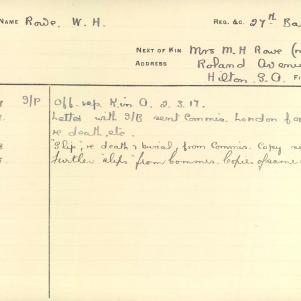 NAME Rowe, W. H. REG. &C. 27th. Ba
NEXT OF KIN Mrs M. H Rowe (
ADDRESS Roland Avenue
Hilton. S.A. Fi
9/P Off. rep. Kin A. 2.3.17.
Letter with 9/B sent Commis. London for
re death, etc.
"Slip", re death & burial, from Commis. Copy
Further "slips" from Commis. Copies of same